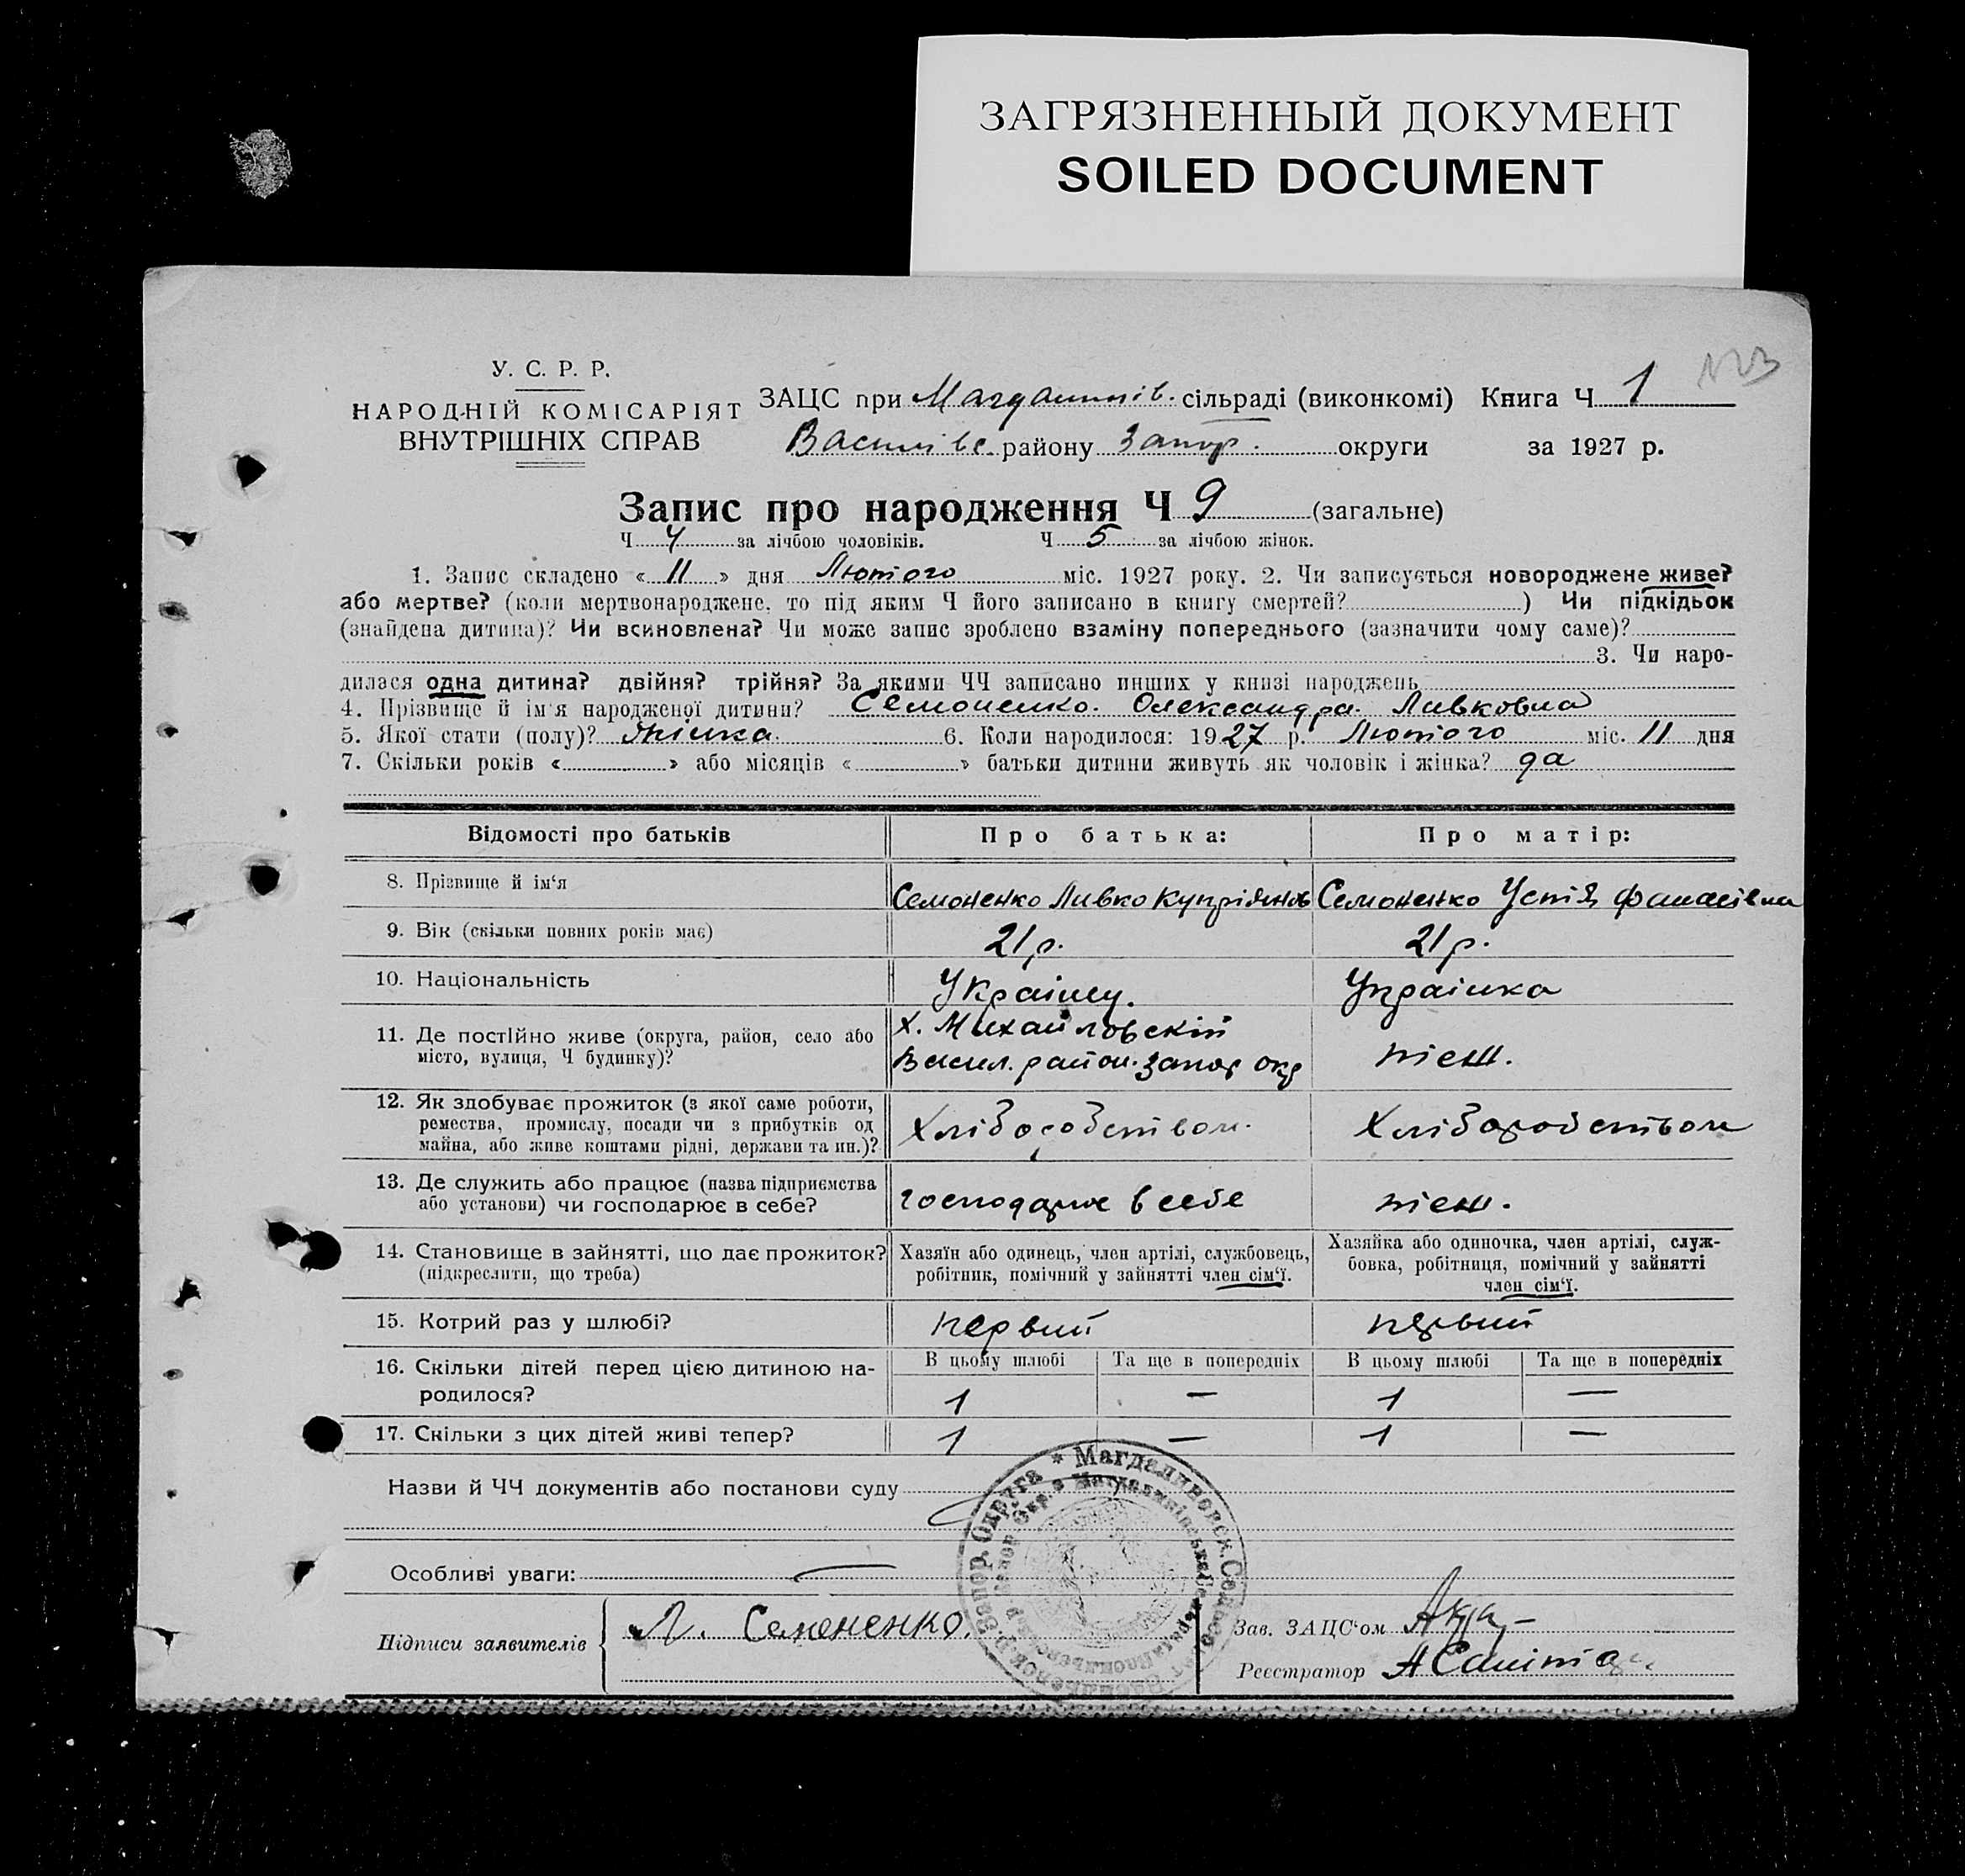 ЗАГРЯЗНЕННЫЙ ДОКУМЕНТ
SOILED DOCUMENT
У. С. Р. Р.
НАРОДНІЙ КОМІСАРІЯТ
ВНУТРІШНІХ СПРАВ
ЗАЦС при Магдалинів. сільраді (виконкомі) Книга Ч 1
Василівс. району Запор. округи за 1927 р.
Запис про народження Ч 9 (загальне)
Ч 4 за лічбою чоловіків. Ч 5 за лічбою жінок.
1. Запис складено « 11 » дня Лютого міс. 1927 року. 2. Чи записується новороджене живе?
або мертве? (коли мертвонароджене, то під яким Ч його записано в книгу смертей? ) Чи підкідьок
(знайдена дитина)? Чи всиновлена? Чи може запис зроблено взаміну попереднього (зазначити чому саме)?
3. Чи наро-
дилася одна дитина? двійня? трійня? За якими ЧЧ записано инших у книзі народжень
4. Прізвище й ім'я народженої дитини? Семоненко. Олександра. Ливковна
5. Якої стати (полу)? Жінка. 6. Коли народилося: 1927 р. Лютого міс. 11 дня
7. Скільки років « » або місяців « » батьки дитини живуть як чоловік і жінка? да
Відомості про батьків Про батька: Про матір:
8. Прізвище й ім'я Семоненко Ливко Купріянов Семоненко Устія Фанасівна
9. Вік (скільки повних років має) 21 р. 21 р.
10. Національність Україц. Українка
11. Де постійно живе (округа, район, село або
місто, вулиця, Ч будинку)?
х. Михайловскій
Васил. район. Запор окр
теж.
12. Як здобуває прожиток (з якої саме роботи,
ремества, промислу, посади чи з прибутків од
майна, або живе коштами рідні, держави та ин.)?
Хліборобством. Хліборобством
13. Де служить або працює (назва підприємства
або установи) чи господарює в себе?
господарює в себе теж.
14. Становище в зайнятті, що дає прожиток?
(підкреслити, що треба)
Хазяїн або одинець, член артілі, службовець,
робітник, помічний у зайнятті член сім'ї.
Хазяйка або одиночка, член артілі, служ-
бовка, робітниця, помічний у зайнятті
член сім'ї.
15. Котрий раз у шлюбі? первий первий
16. Скільки дітей перед цією дитиною на-
родилося?
В цьому шлюбі Та ще в попередніх В цьому шлюбі Та ще в попередніх
1 — 1 —
17. Скільки з цих дітей живі тепер? 1 — 1 —
Назви й ЧЧ документів або постанови суду
Особливі уваги: —
Підписи заявителів Л. Семененко.
Зав. ЗАЦС'ом
Реєстратор
Запор. Округа * Магдалиновск. Сельсовет Васильевск. р.